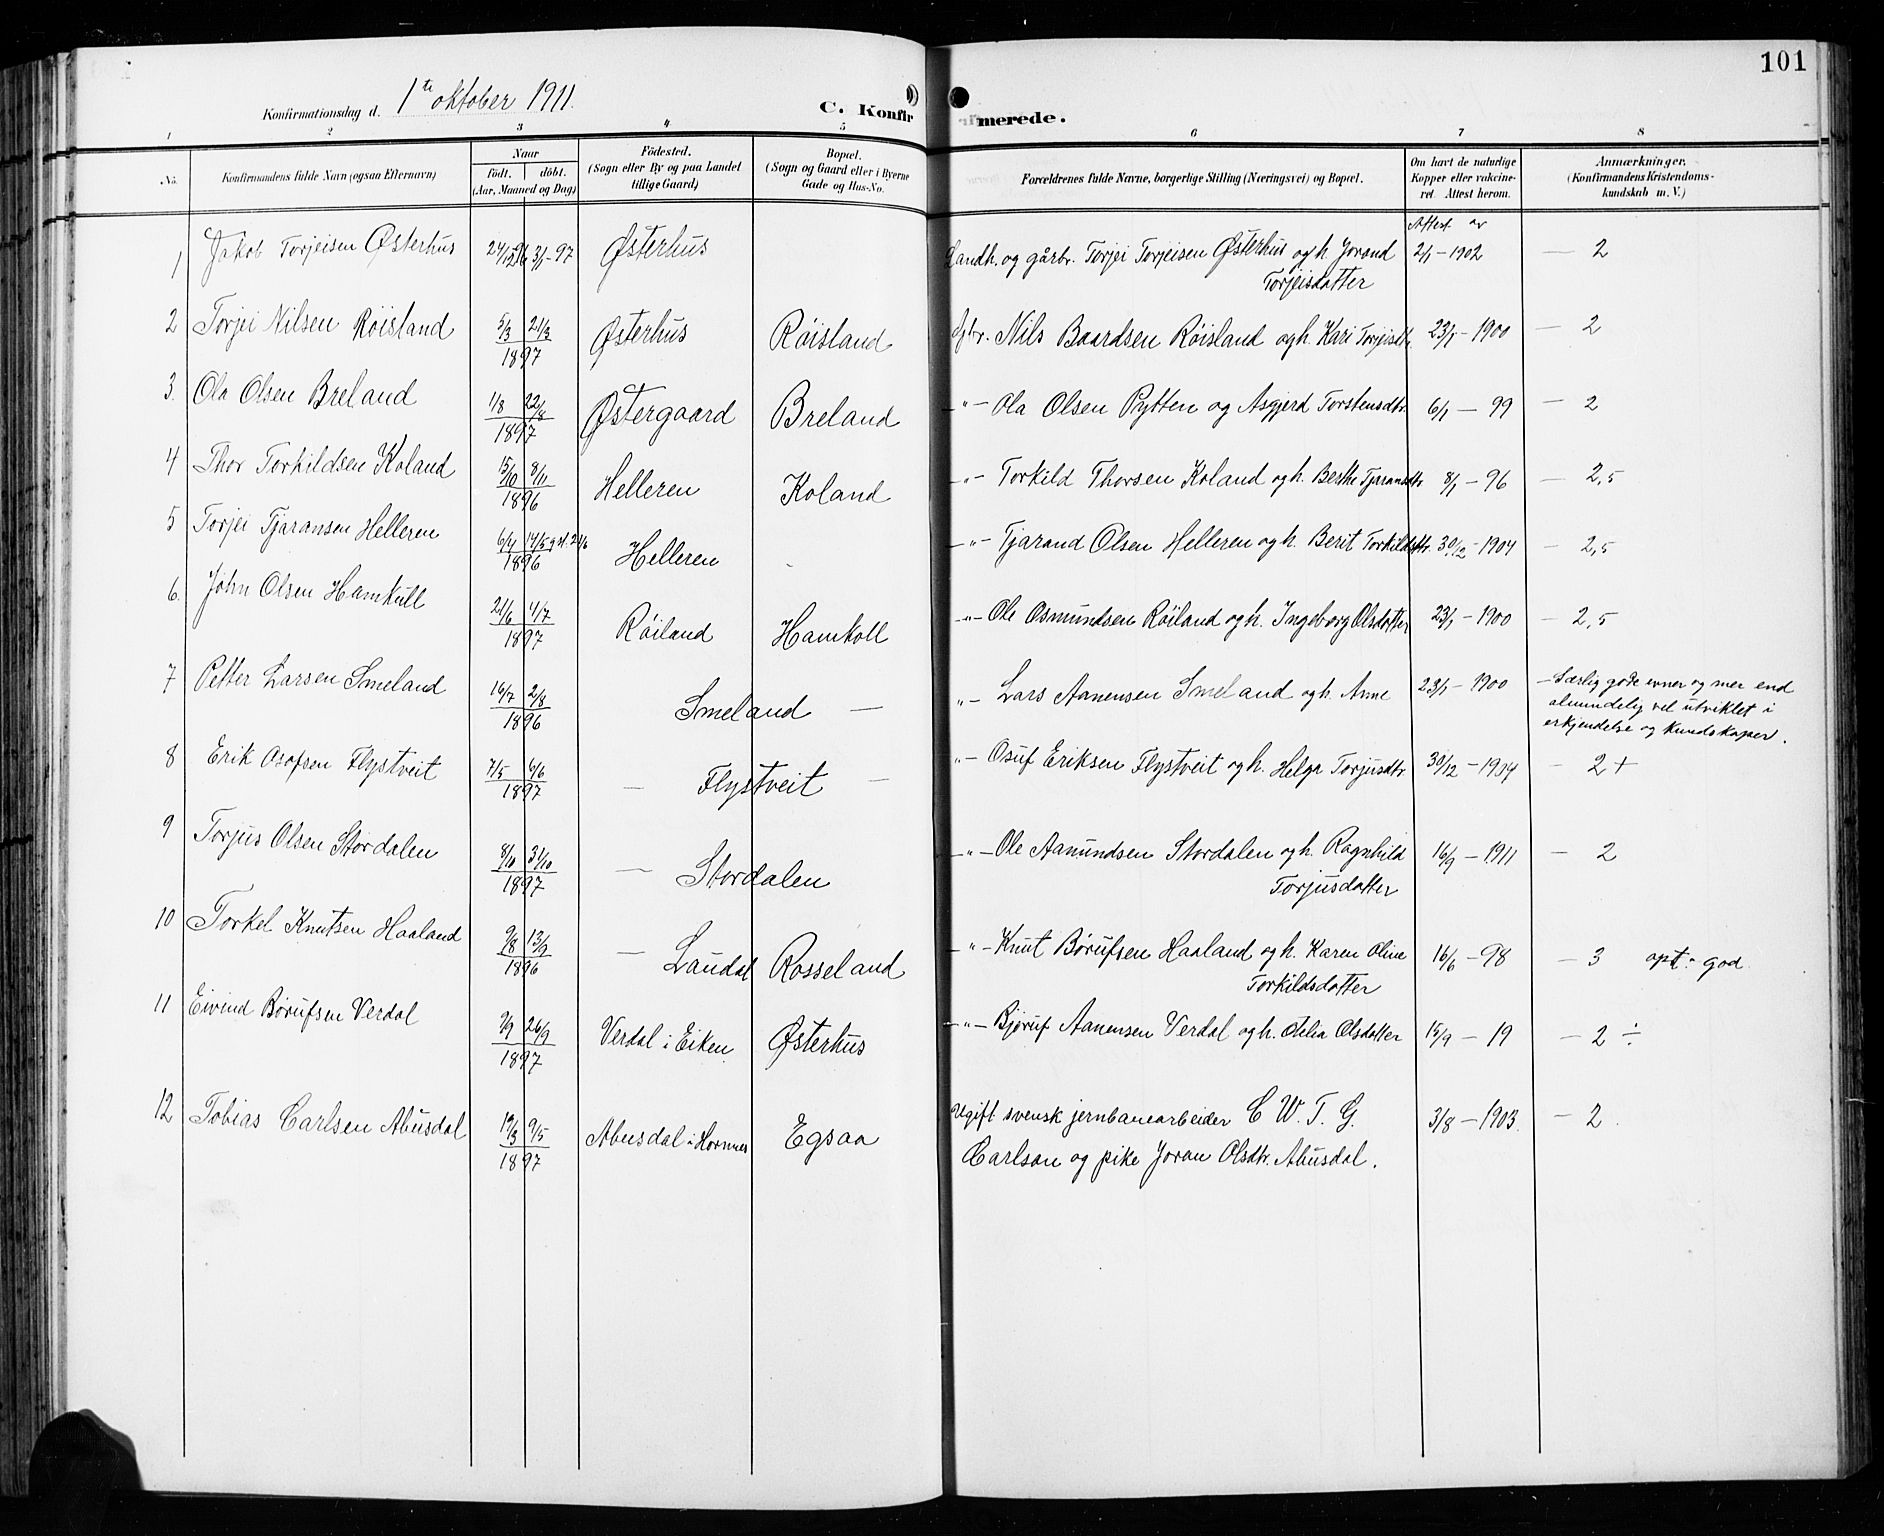 101
Konfirmationsdag d. 1te oktober 1911.
C. Konfirmerede.
1 2 3 4 5 6 7 8
No.
Konfirmandens fulde Navn (ogsaa Efternavn)
Naar
født. døbt.
(Aar, Maaned og Dag)
Fødested.
(Sogn eller By og paa Landet
tillige Gaard)
Bopæl.
(Sogn og Gaard eller i Byerne
Gade og Hus-No.
Forældrenes fulde Navne, borgerlige Stilling (Næringsvei) og Bopæl.
Om havt de naturlige
Kopper eller vakcine-
ret. Attest herom.
Anmærkninger.
(Konfirmandens Kristendoms-
kundskab m. V.)
Attest av
1 Jakob Torjeisen Østerhus 24/12 96 3/1-97 Østerhus Landh. og gårbr. Torjei Torjeisen Østerhus og h. Jorand 2/1-1902 — 2
Torjeisdatter
2 Torjei Nilsen Røisland 5/3 21/3 1897 Østerhus Røisland Gbr. Nils Baardsen Røisland og h. Kari Torjeisdtr. 23/1-1900 — 2
3. Ola Olsen Breland 1/8 22/8 1897 Østergaard Breland —"— Ola Olsen Pytten og Asgjerd Torstensdtr. 6/1 — 99 — 2
4 Thor Torkildsen Koland 15/10 8/11 1896 Helleren Koland —"— Torkild Thorsen Koland og h. Berthe Tjaransdtr 8/1 — 96 — 2,5
5 Torjei Tjaransen Helleren 6/4 14/5 g st. 21/6 1896 Helleren - —"— Tjarand Olsen Helleren og h. Berit Torkildsdtr. 30/12-1904 — 2,5
6. John Olsen Hamkull 21/6 4/7 1897 Røiland Hamkoll —"— Ole Osmundsen Røiland og h. Ingeborg Olsdatter 23/1-1900 — 2,5
7 Petter Larsen Smeland 16/7 2/8 1896 Smeland — "— Lars Aanensen Smeland og h. Anne 23/1-1900 — Særlig gode evner og mer end
almindelig vel utviklet i
erkjendelse og kundskaper.
8 Erik Osofsen Flystveit 7/5 6/6 1897 — Flystveit — "— Osuf Eriksen Flystveit og h. Helga Torjusdtr 30/12-1904 — 2 +
9 Torjus Olsen Stordalen 8/10 31/10 1897 — Stordalen —"— Ole Aamundsen Stordalen og h. Ragnhild 16/9-1911 — 2
Torjusdatter
10 Torkel Knutsen Haaland 9/8 13/9 1896 — Laudal Rosseland —"— Knut Børufsen Haaland og h. Karen Oline 16/6-98 — 3 opt. god
Torkildsdatter
11 Eivind Børufsen Verdal 2/9 26/9 1897 Verdal i Eiken Østerhus —"— Bjøruf Aanensen Verdal og h. Otelia Olsdatter 15/9 — 19 — 2 ÷
12 Tobias Carlsen Abusdal 19/3 9/5 1897 Abusdal i Hornnes Egsaa Ugift svensk jernbanearbeider C W. T. G. 3/8-1903. — 2.
Carlson og pike Joran Olsdtr. Abusdal.